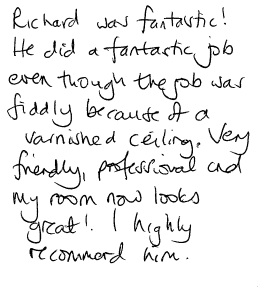 Richard was fantastic!
He did a fantastic job
even though the job was
fiddly because of a
varnished ceiling. Very
friendly, professional and
my room now looks
great! I highly
recommend him.